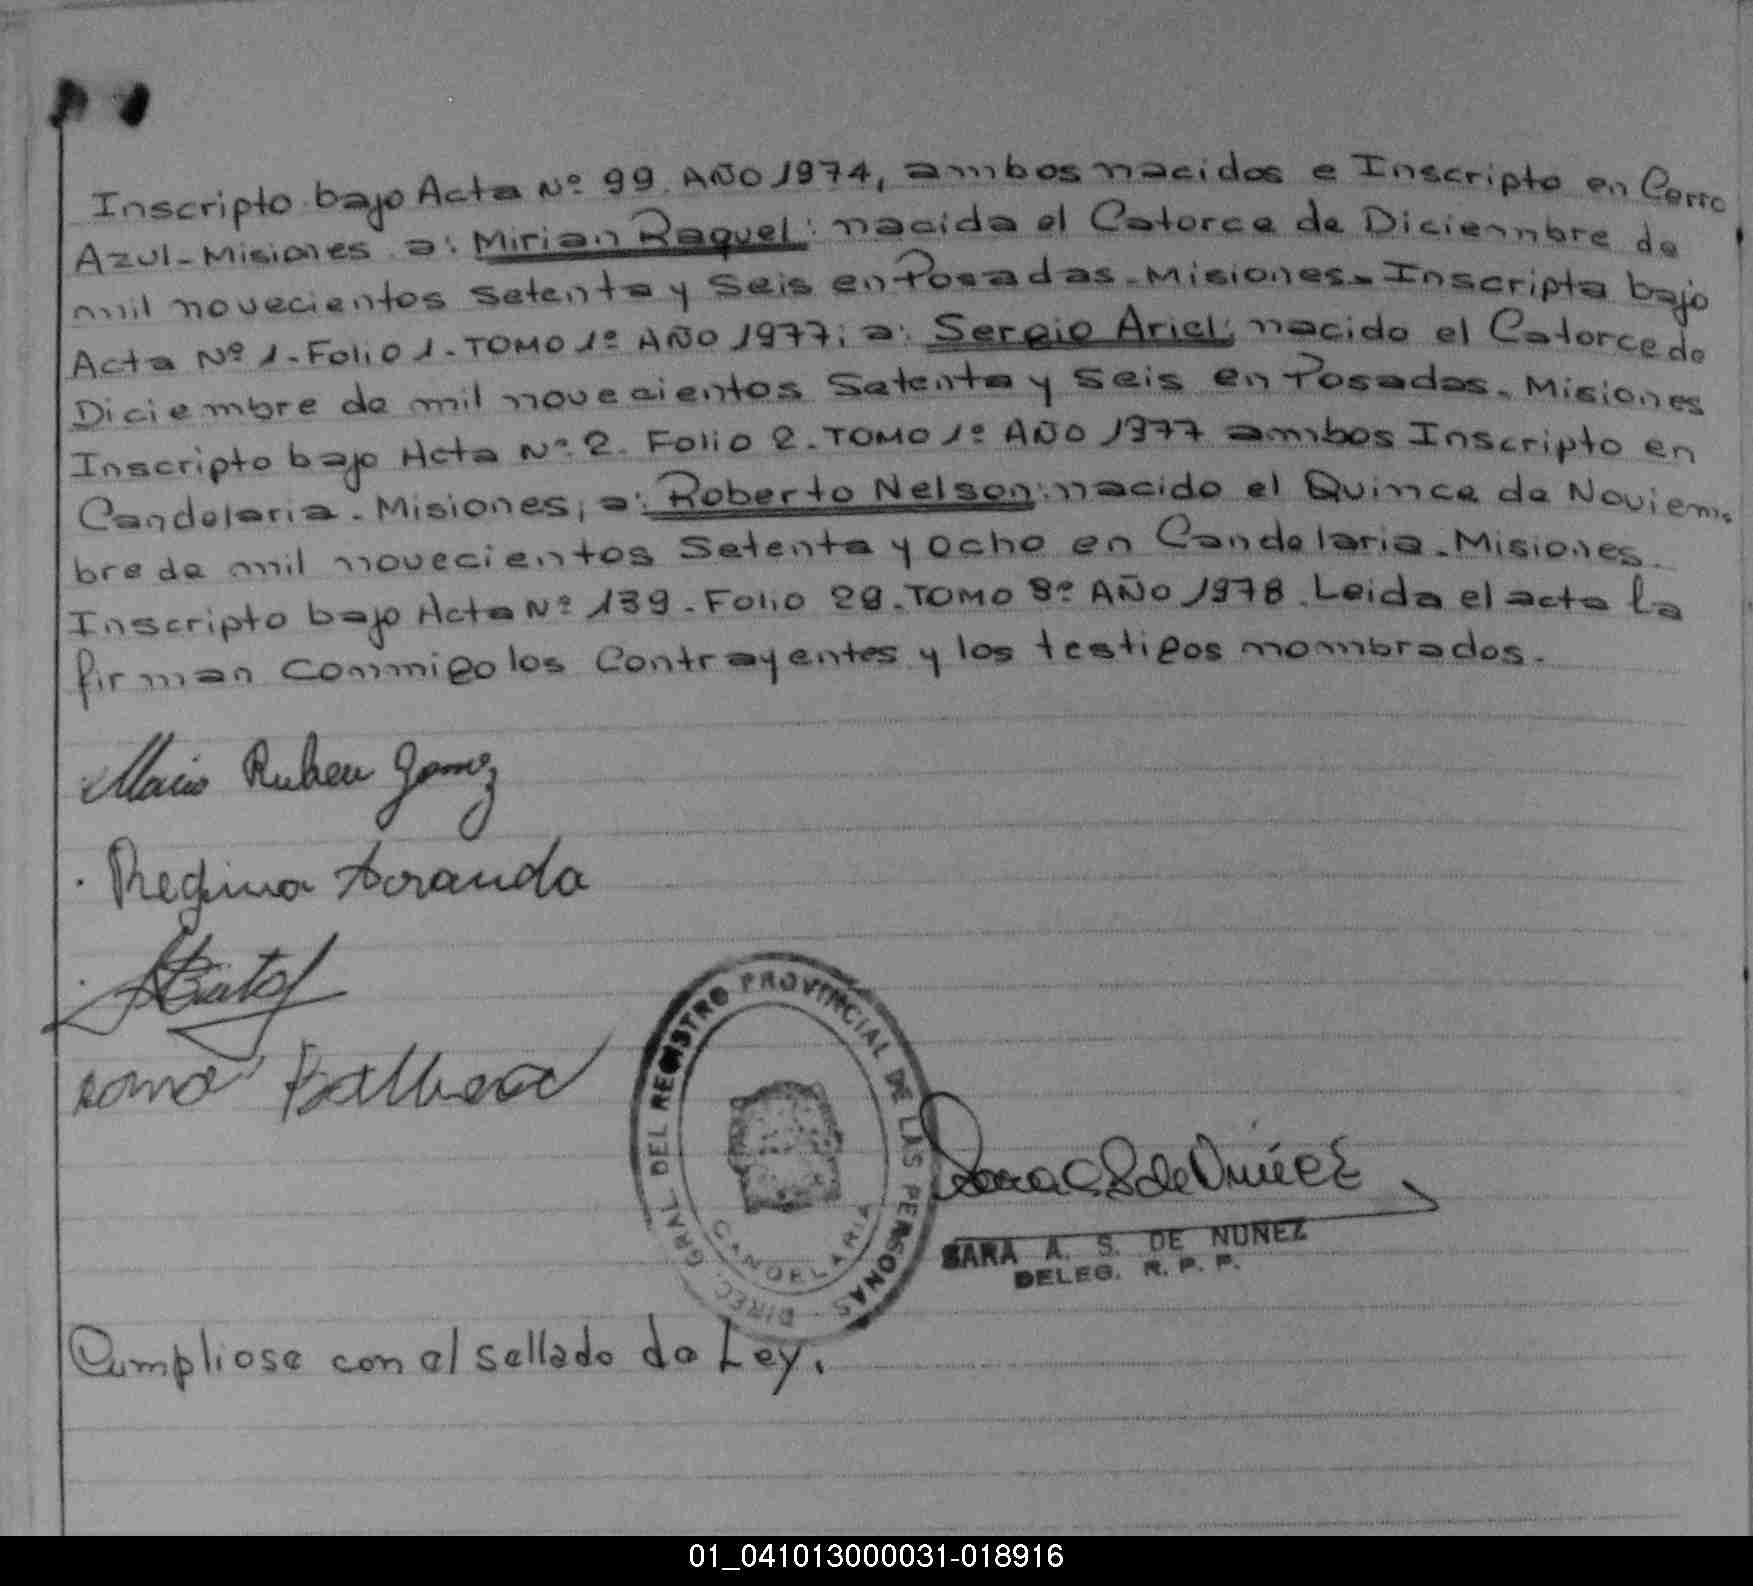 Inscripto bajo Acta Nº 99. AÑO 1974, ambos nacidos e Inscripto en Cerro
Azul-Misiones a: Mirian Raquel: nacida el Catorce de Diciembre de
mil novecientos setenta y seis en Posadas-Misiones-Inscripta bajo
Acta Nº 1-Folio 1-TOMO 1º AÑO 1977; a: Sergio Ariel; nacido el Catorce de
Diciembre de mil novecientos Setenta y seis en Posadas-Misiones
Inscripto bajo Acta Nº 2. Folio 2-TOMO 1º AÑO 1977 ambos Inscripto en
Candelaria-Misiones; a: Roberto Nelson: nacido el Quince de Noviem-
bre de mil novecientos Setenta y ocho en Candelaria-Misiones.
Inscripto bajo Acta Nº 139-Folio 29-TOMO 8º AÑO 1978. Leida el acta la
firman conmigo los Contrayentes y los testigos nombrados.
Mario Ruben Gomez
Regina Aranda
DIREC. GRAL DEL REGISTRO PROVINCIAL DE LAS PERSONAS
CANDELARIA
Sara A S de Núñez
SARA A. S. DE NUÑEZ
DELEG. R. P. P.
Cumpliose con el sellado de Ley.
01_041013000031-018916